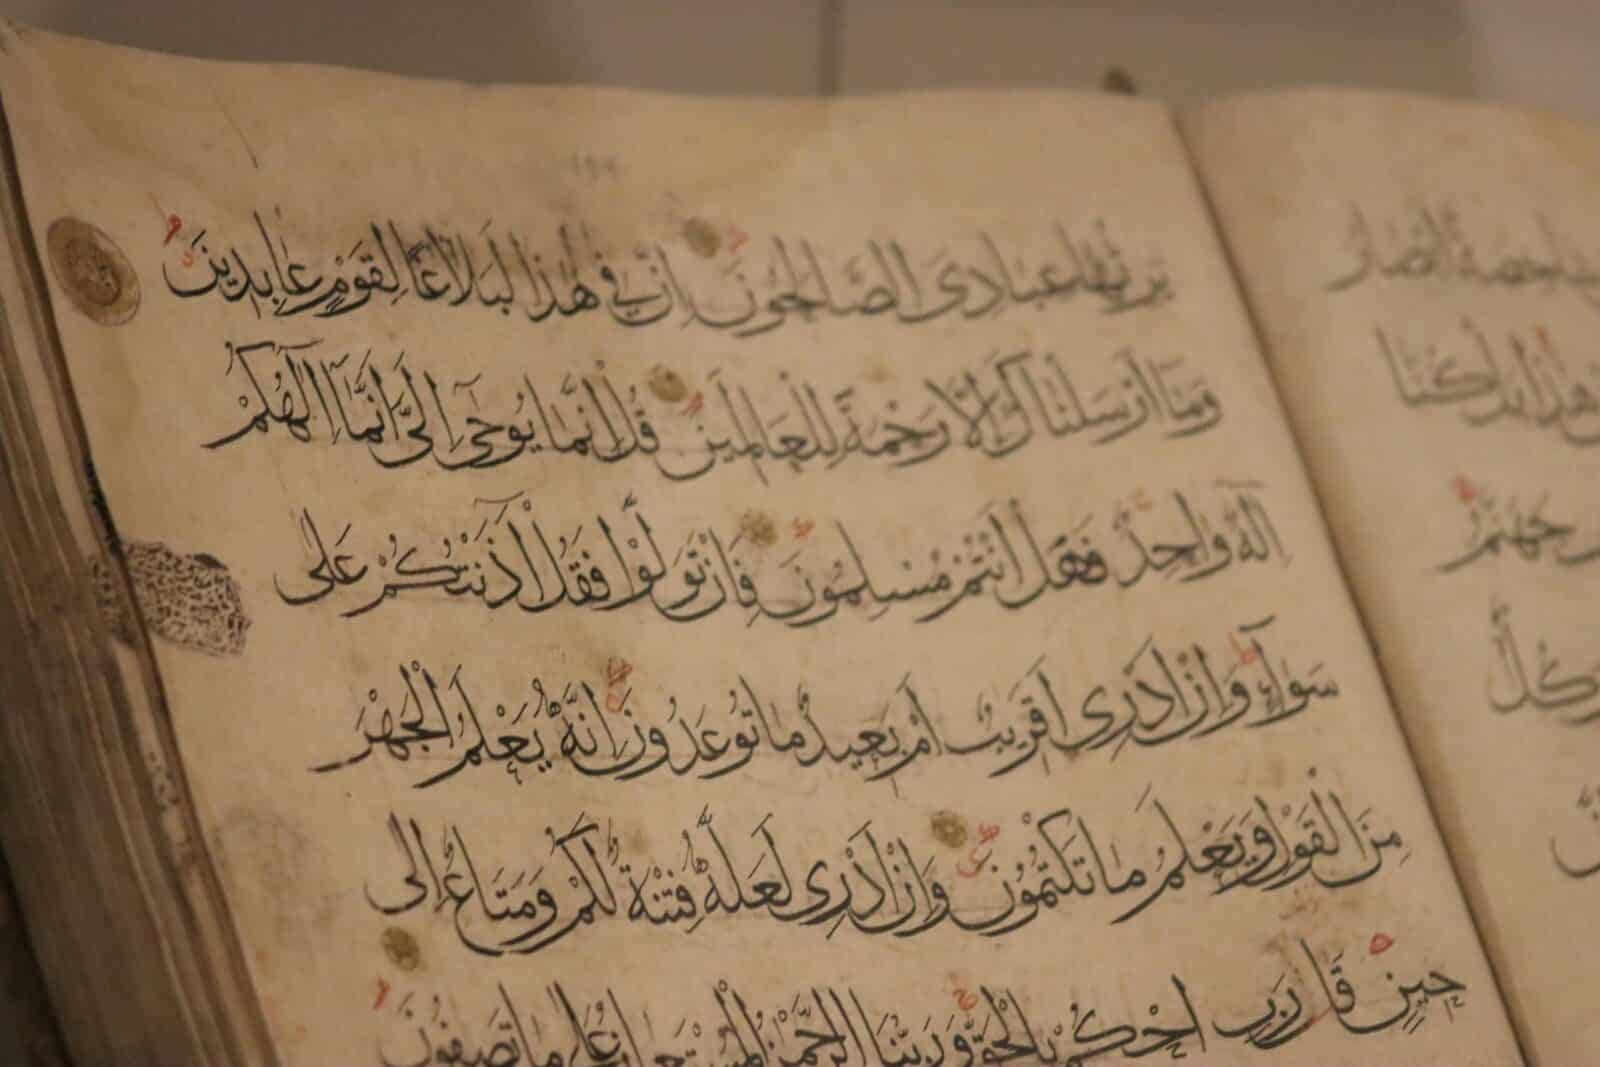 يرثها عبادى الصالحون ان فى هذا لبلاغا لقوم عابدين
وما ارسلناك الا رحمة للعالمين قل انما يوحى الى انما الهكم
اله واحد فهل انتم مسلمون فان تولوا فقل آذنتكم على
سواء وان ادرى اقريب ام بعيد ما توعدون انه يعلم الجهر
من القول ويعلم ما تكتمون وان ادرى لعله فتنة لكم ومتاع الى
حين قل رب احكم بالحق وربنا الرحمن المستعان على ما تصفون
جهنم
وكل